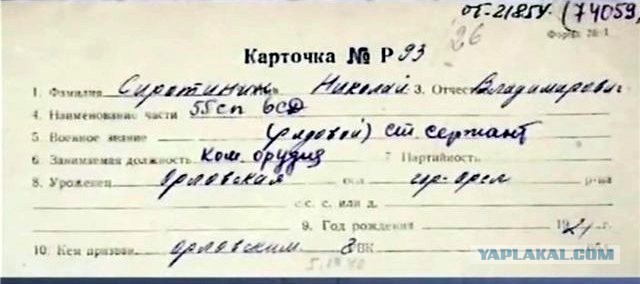 от-21854. (74059)
Форма № 1
26
Карточка № Р 93
1. Фамилия Сиротинин Николай 3. Отчество Владимирович
4. Наименование части 55сп 6СД
5. Военное звание (рядовой) ст. сержант
6. Занимаемая должность ком. орудия 7. Партийность
8. Уроженец Орловская обл гор-орел р-на
с. с. с. или д.
9. Год рождения 1921 г.
10. Кем призван орловским ВК
5.10.40
YAPLAKAL.COM